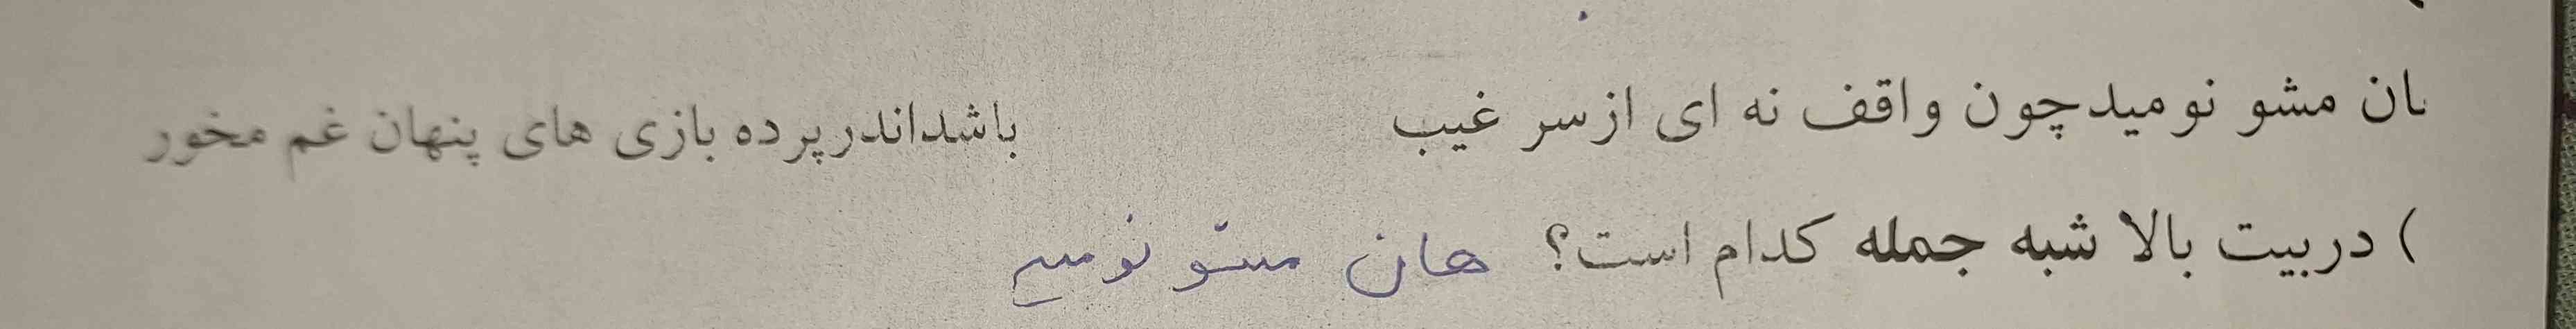 ان مشو نومیدچون واقف نه ای ازسر غیب باشداندرپرده بازی های پنهان غم مخور
) دربیت بالا شبه جمله کدام است؟ هان مشو نومید